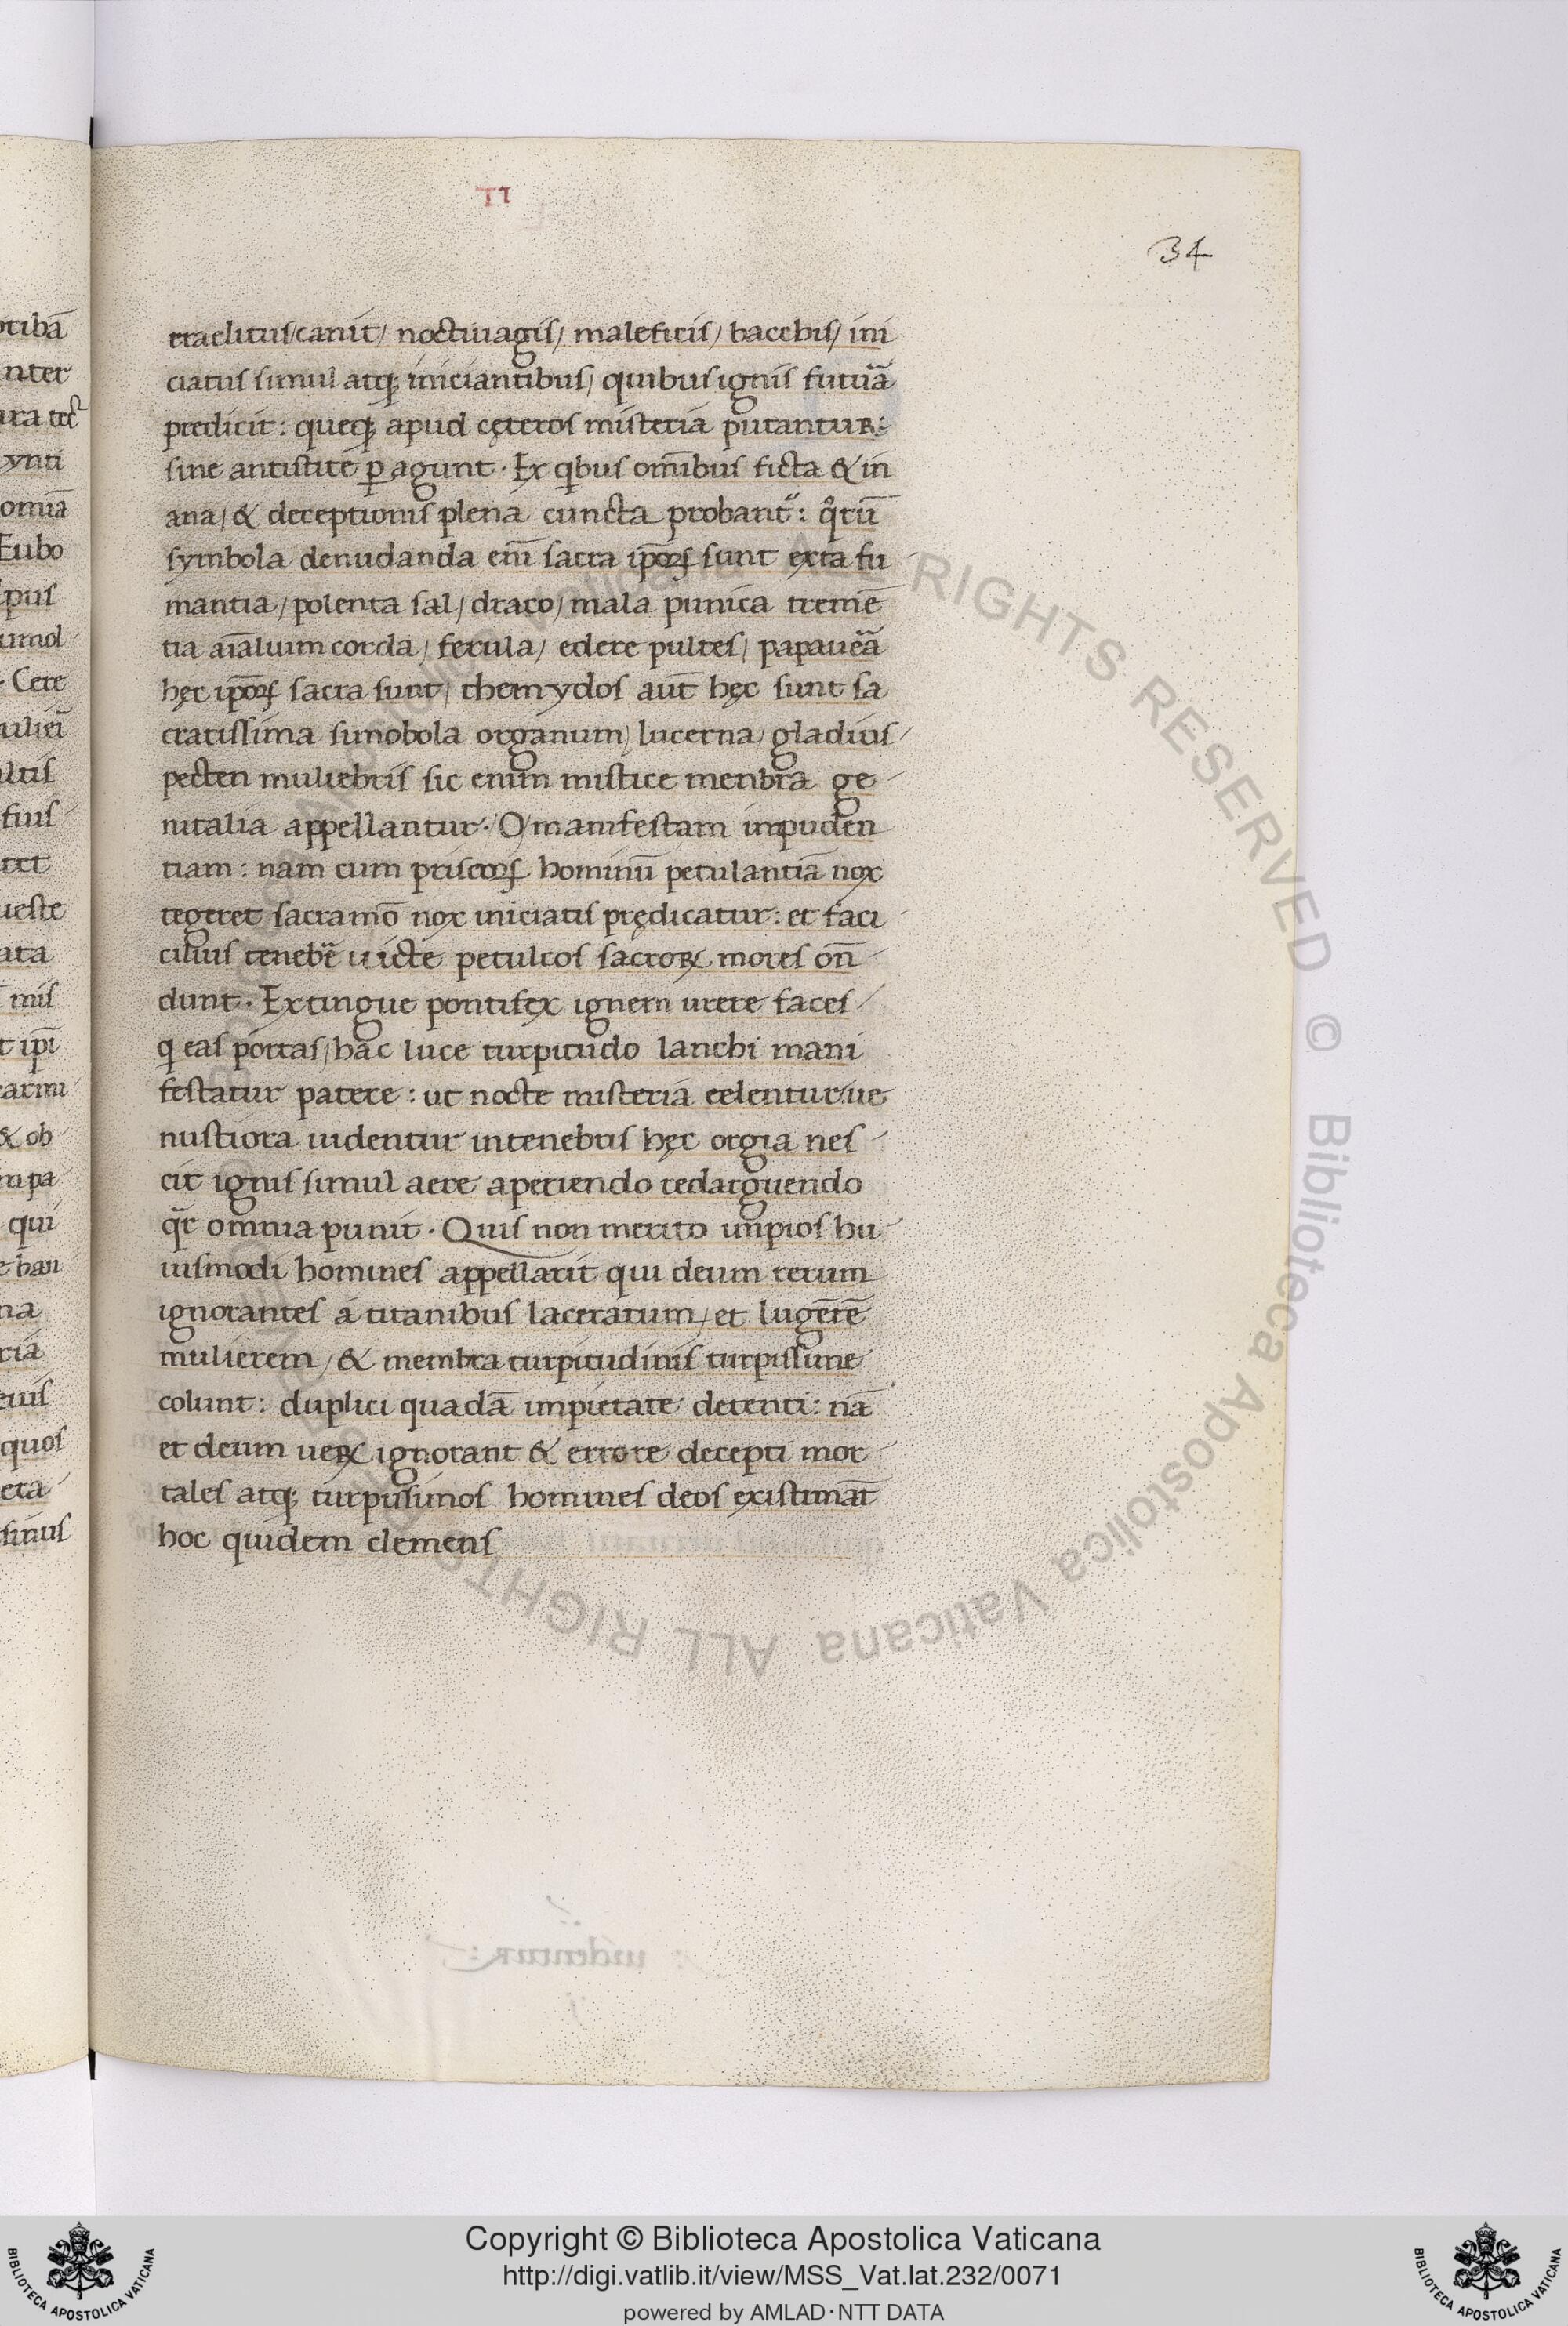 II
34
eraclitus/canit/ noctiuagis/ maleficis/ bacchis/ ini
ciatus simul atq; iniciantibus/ quibus ignis futura
predicit: queq; apud cęteros misteria putantur:
sine antistite p agunt. Ex qbus omībus ficta & in
ana/ & deceptionis plena cuncta probant: qrū
symbola denudanda eni sacra ipoꝝ sunt exta fu
mantia/ polenta sal/ draco/ mala punica tremē
tia aīaluim corda/ ferula/ edere pultes/ papauea
hęc ipoꝝ sacra sunt/ themydos aut hęc sunt sa
cratissima simobola organum/ lucerna/ gladius
pecten muliebris sic enim mistice menbra ge
nitalia appellantur. O/ manifestam impuden
tiam: nam cum priscoꝝ hominū petulantiā nox
tegeret sacramō nox iniciatis prędicatur: et faci
cilius tenebre uicte petulcos sacroꝝ mores on̄
dunt. Extingue pontifex ignem urere faces
q eas portas/ hac luce turpitudo Ianchi mani
festatur patere: ut nocte misteria celentur/ ue
nustiora uidentur intenebris hęc orgia nes
cit ignis simul aere aperiendo redarguendo
qr omnia punit. Quis non merito impios hu
iusmodi homines appellarit qui deum rerum
ignorantes a titanibus laceratum/ et lugērē
mulierem/ & membra turpitudinis turpissime
colunt: duplici quadā impietate detenti: nā
et deum ueꝝ ignorant & errore decepti mor
tales atq; turpissimos homines deos existimāt
hoc quidem clemens
Copyright © Biblioteca Apostolica Vaticana
http://digi.vatlib.it/view/MSS_Vat.lat.232/0071
powered by AMLAD·NTT DATA